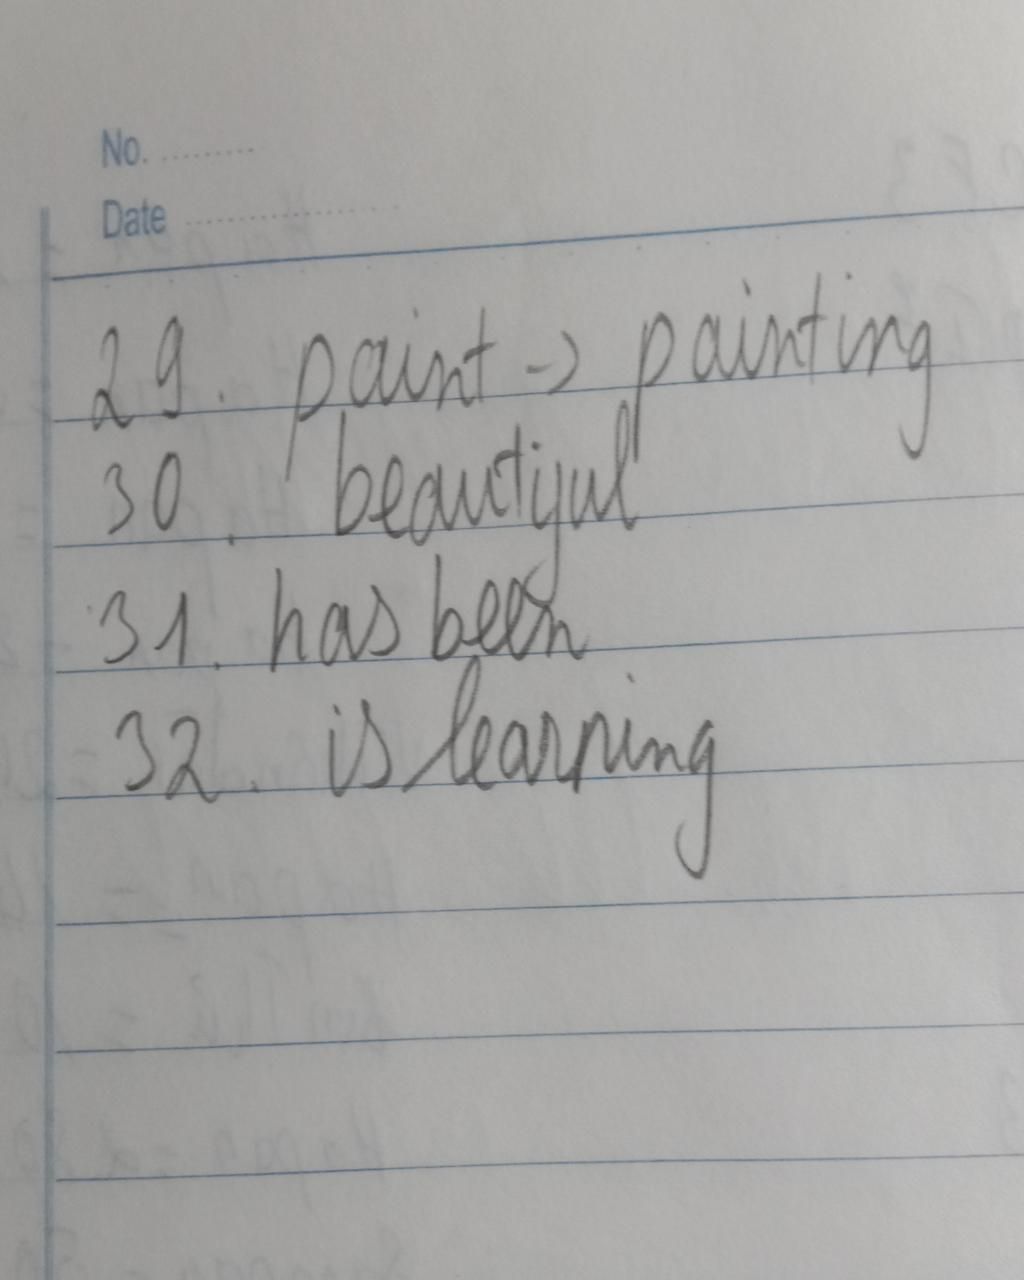 No. .........
Date ....................
29. paint -> painting
30. beautiful
31. has been
32. is learning